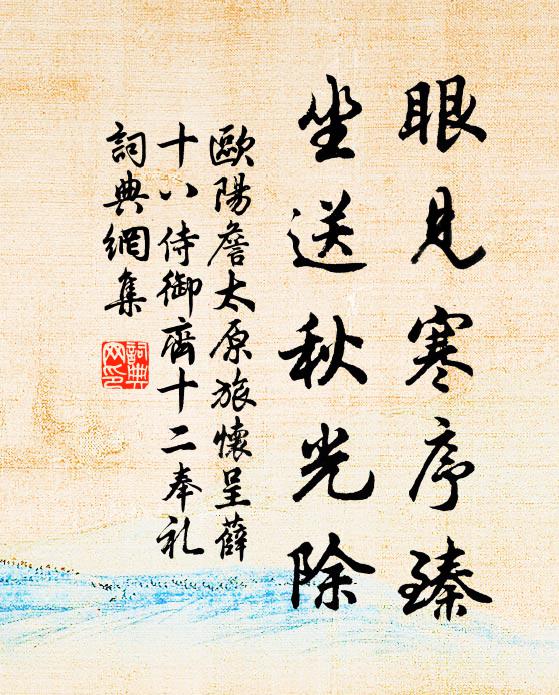 眼見寒序臻
坐送秋光除
歐陽詹太原旅懷呈薛
十八侍御齊十二奉礼
詞典網集
詞典
网印